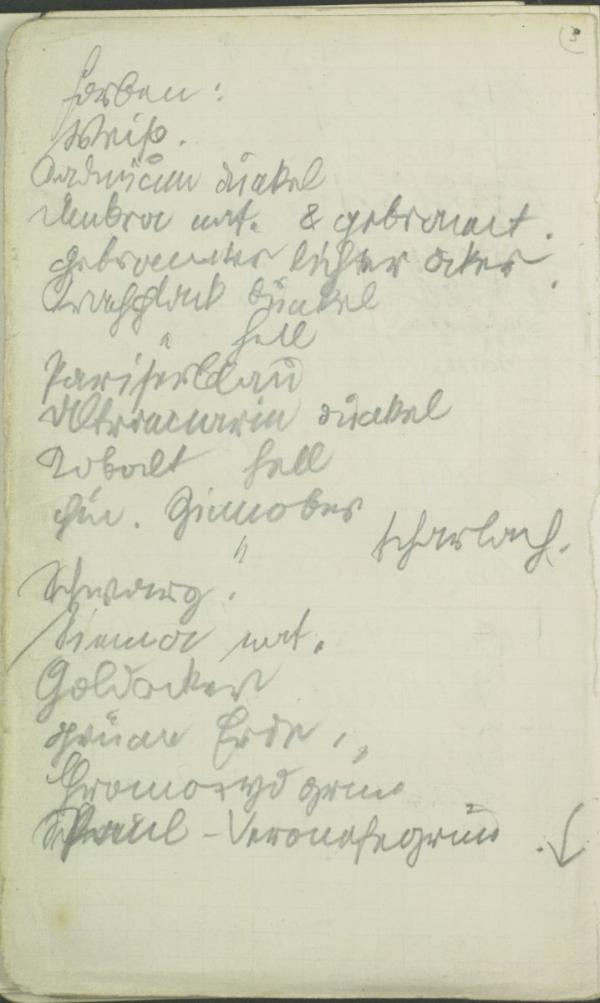 3
Farben:
Weiß.
Cadmium dunkel
Umbra nat. & gebrannt.
gebrannter lichter Ocker.
Krapplack dunkel
" hell
Pariserblau
Ultramarin dunkel
Kobalt hell
chin. Zinnober
" Scharlach.
Schwarz.
Sienna nat.
Goldocker
grüne Erde,
Chromoxydgrün
Paul-Veronesegrün